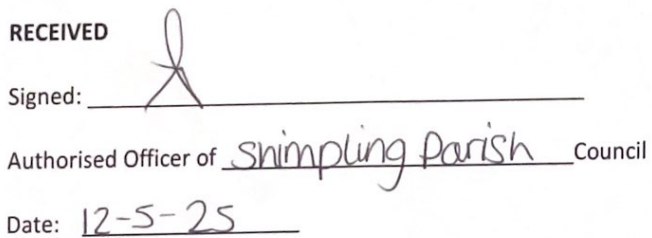 RECEIVED
Signed:
Authorised Officer of Shimpling Parish Council
Date: 12-5-25